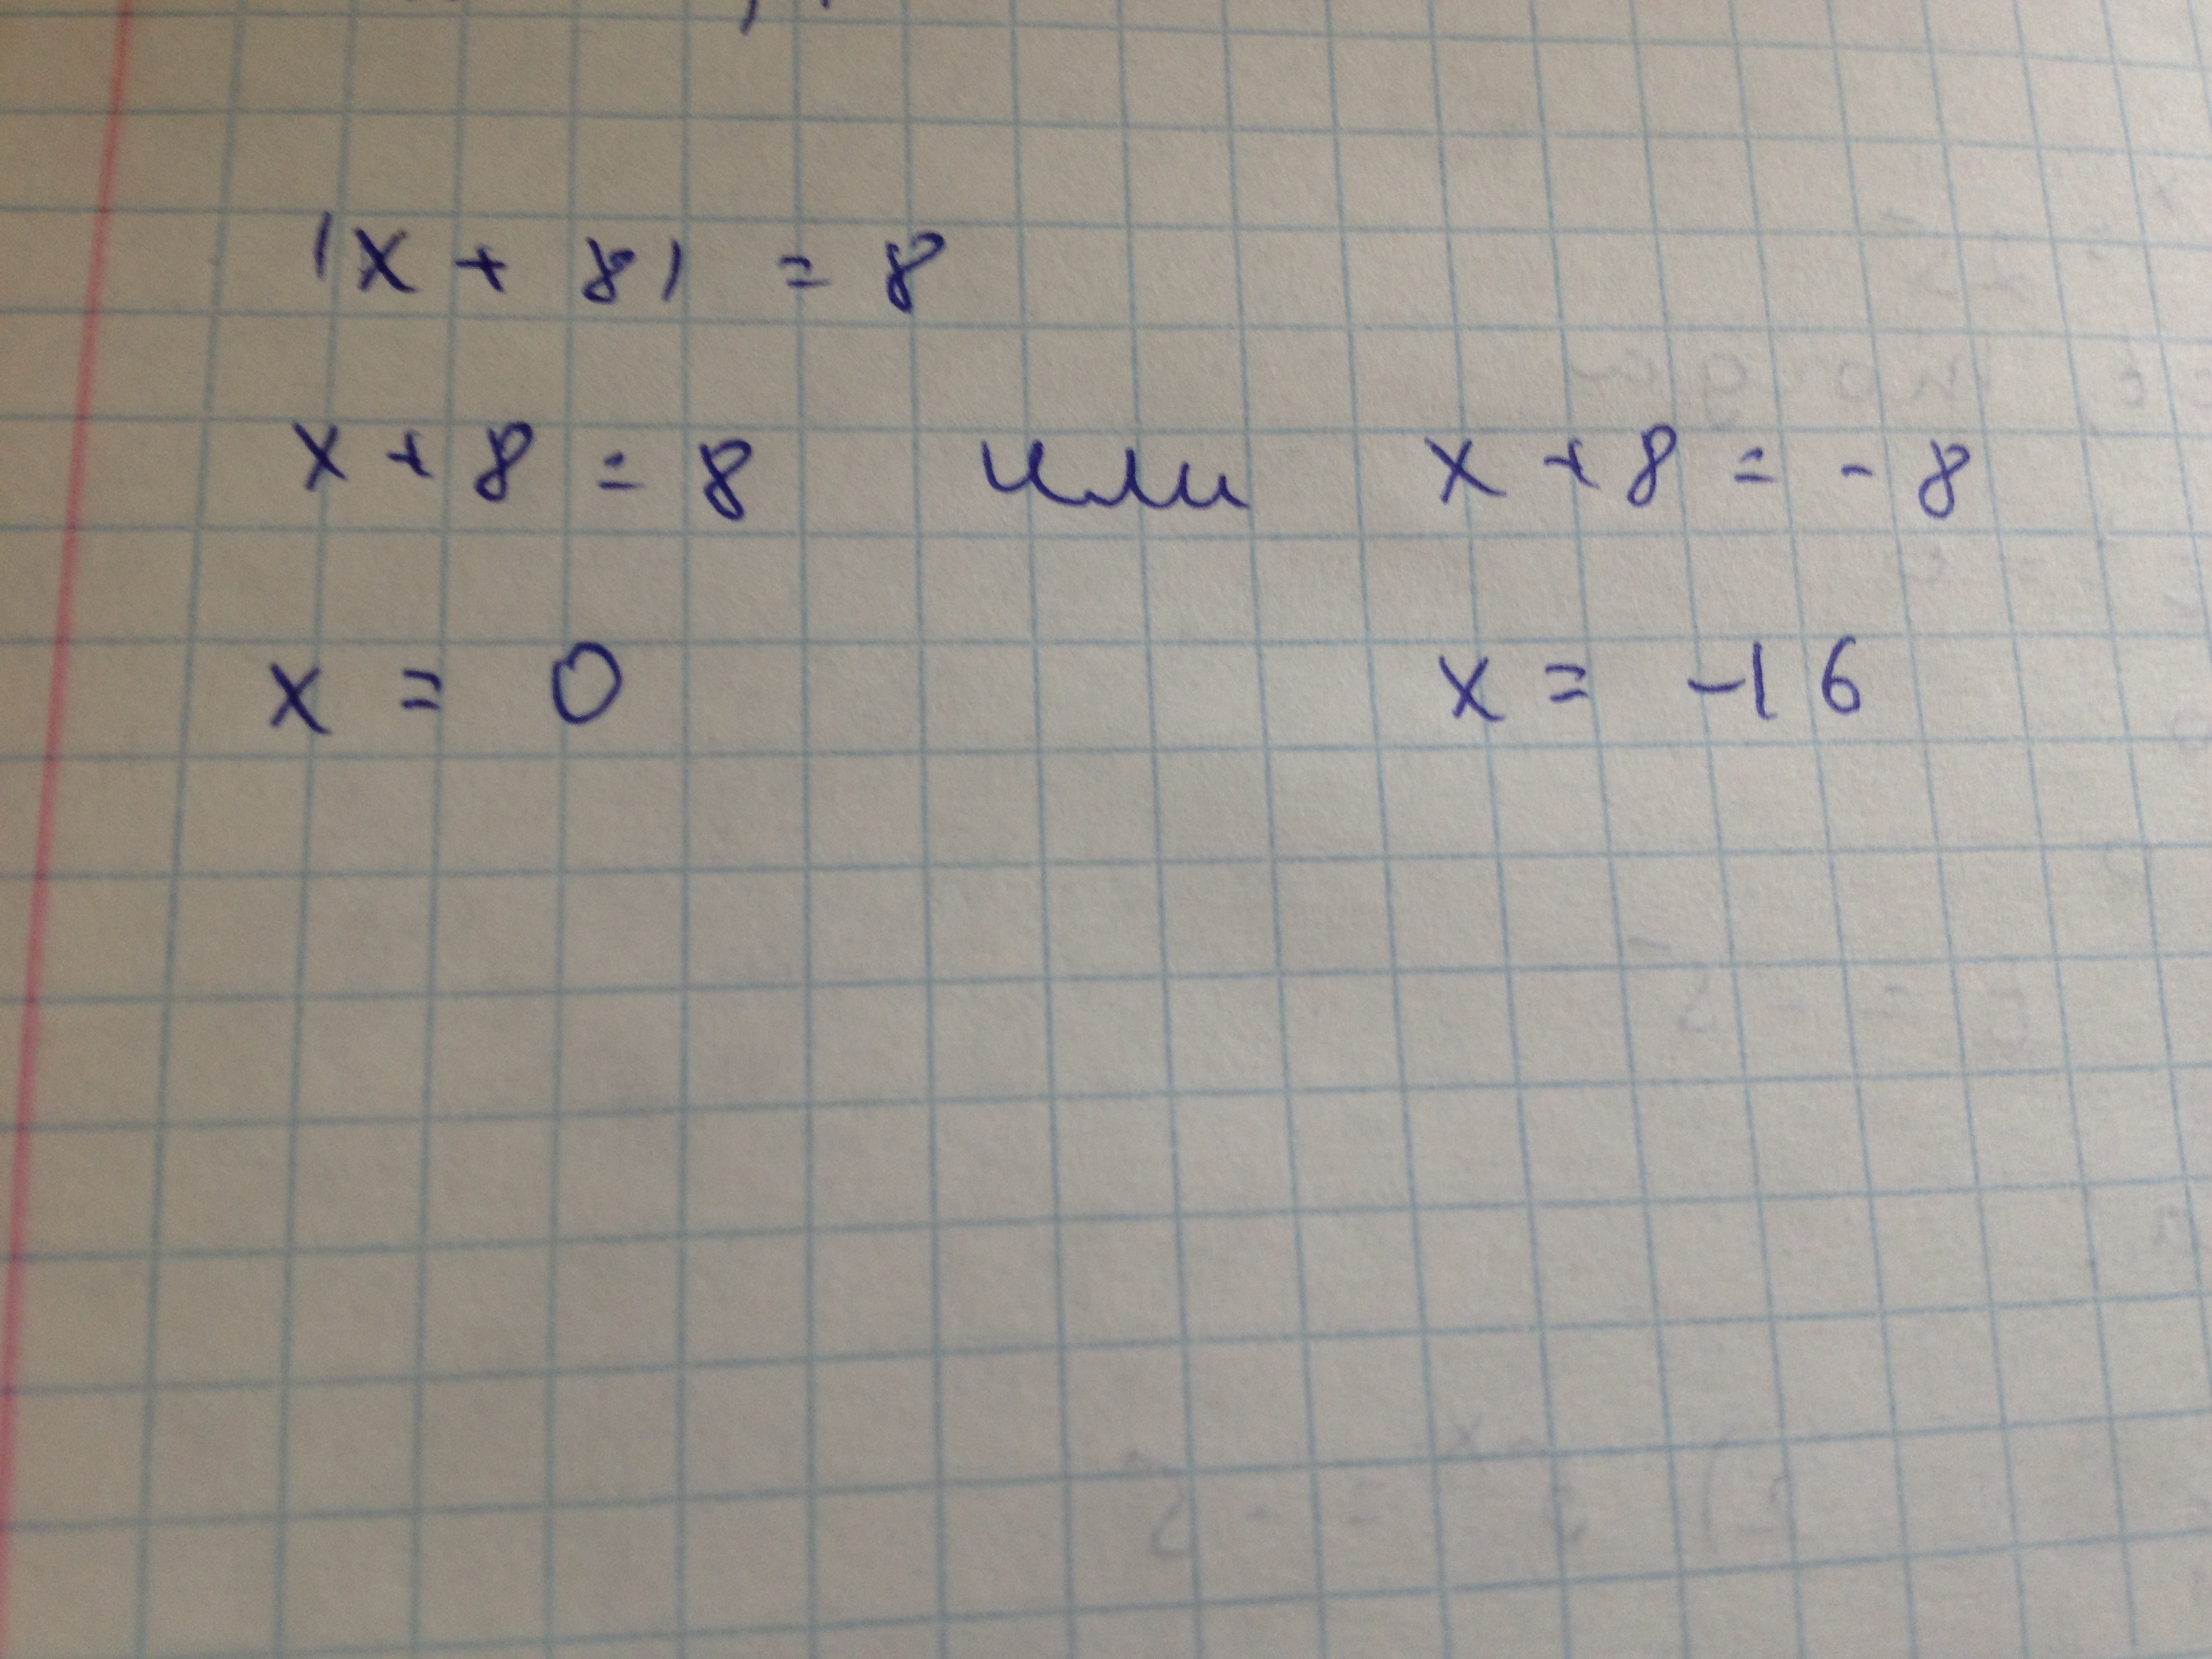 |x + 8| = 8
x + 8 = 8 или x + 8 = - 8
x = 0 x = -16